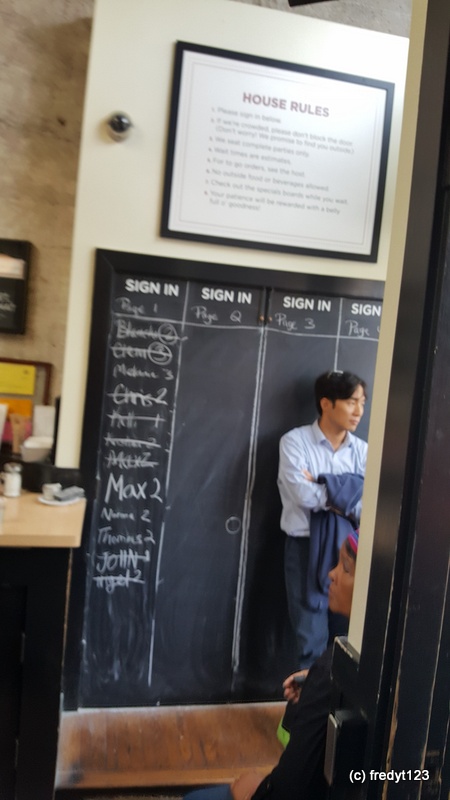 HOUSE RULES
1. Please sign in below.
2. If we're crowded, please don't block the door.
(Don't worry! We promise to find you outside.)
3. We seat complete parties only.
4. Wait times are estimates.
5. For to-go orders, see the host.
6. No outside food or beverages allowed.
7. Check out the specials boards while you wait.
8. Your patience will be rewarded with a belly
full o' goodness!
SIGN IN SIGN IN SIGN IN SIGN
Page 1 Page 2 Page 3 Page
2
3
3
Chris 2
Max 2
Max 2
Norma 2
Thomas 2
JOHN
2
(c) fredyt123